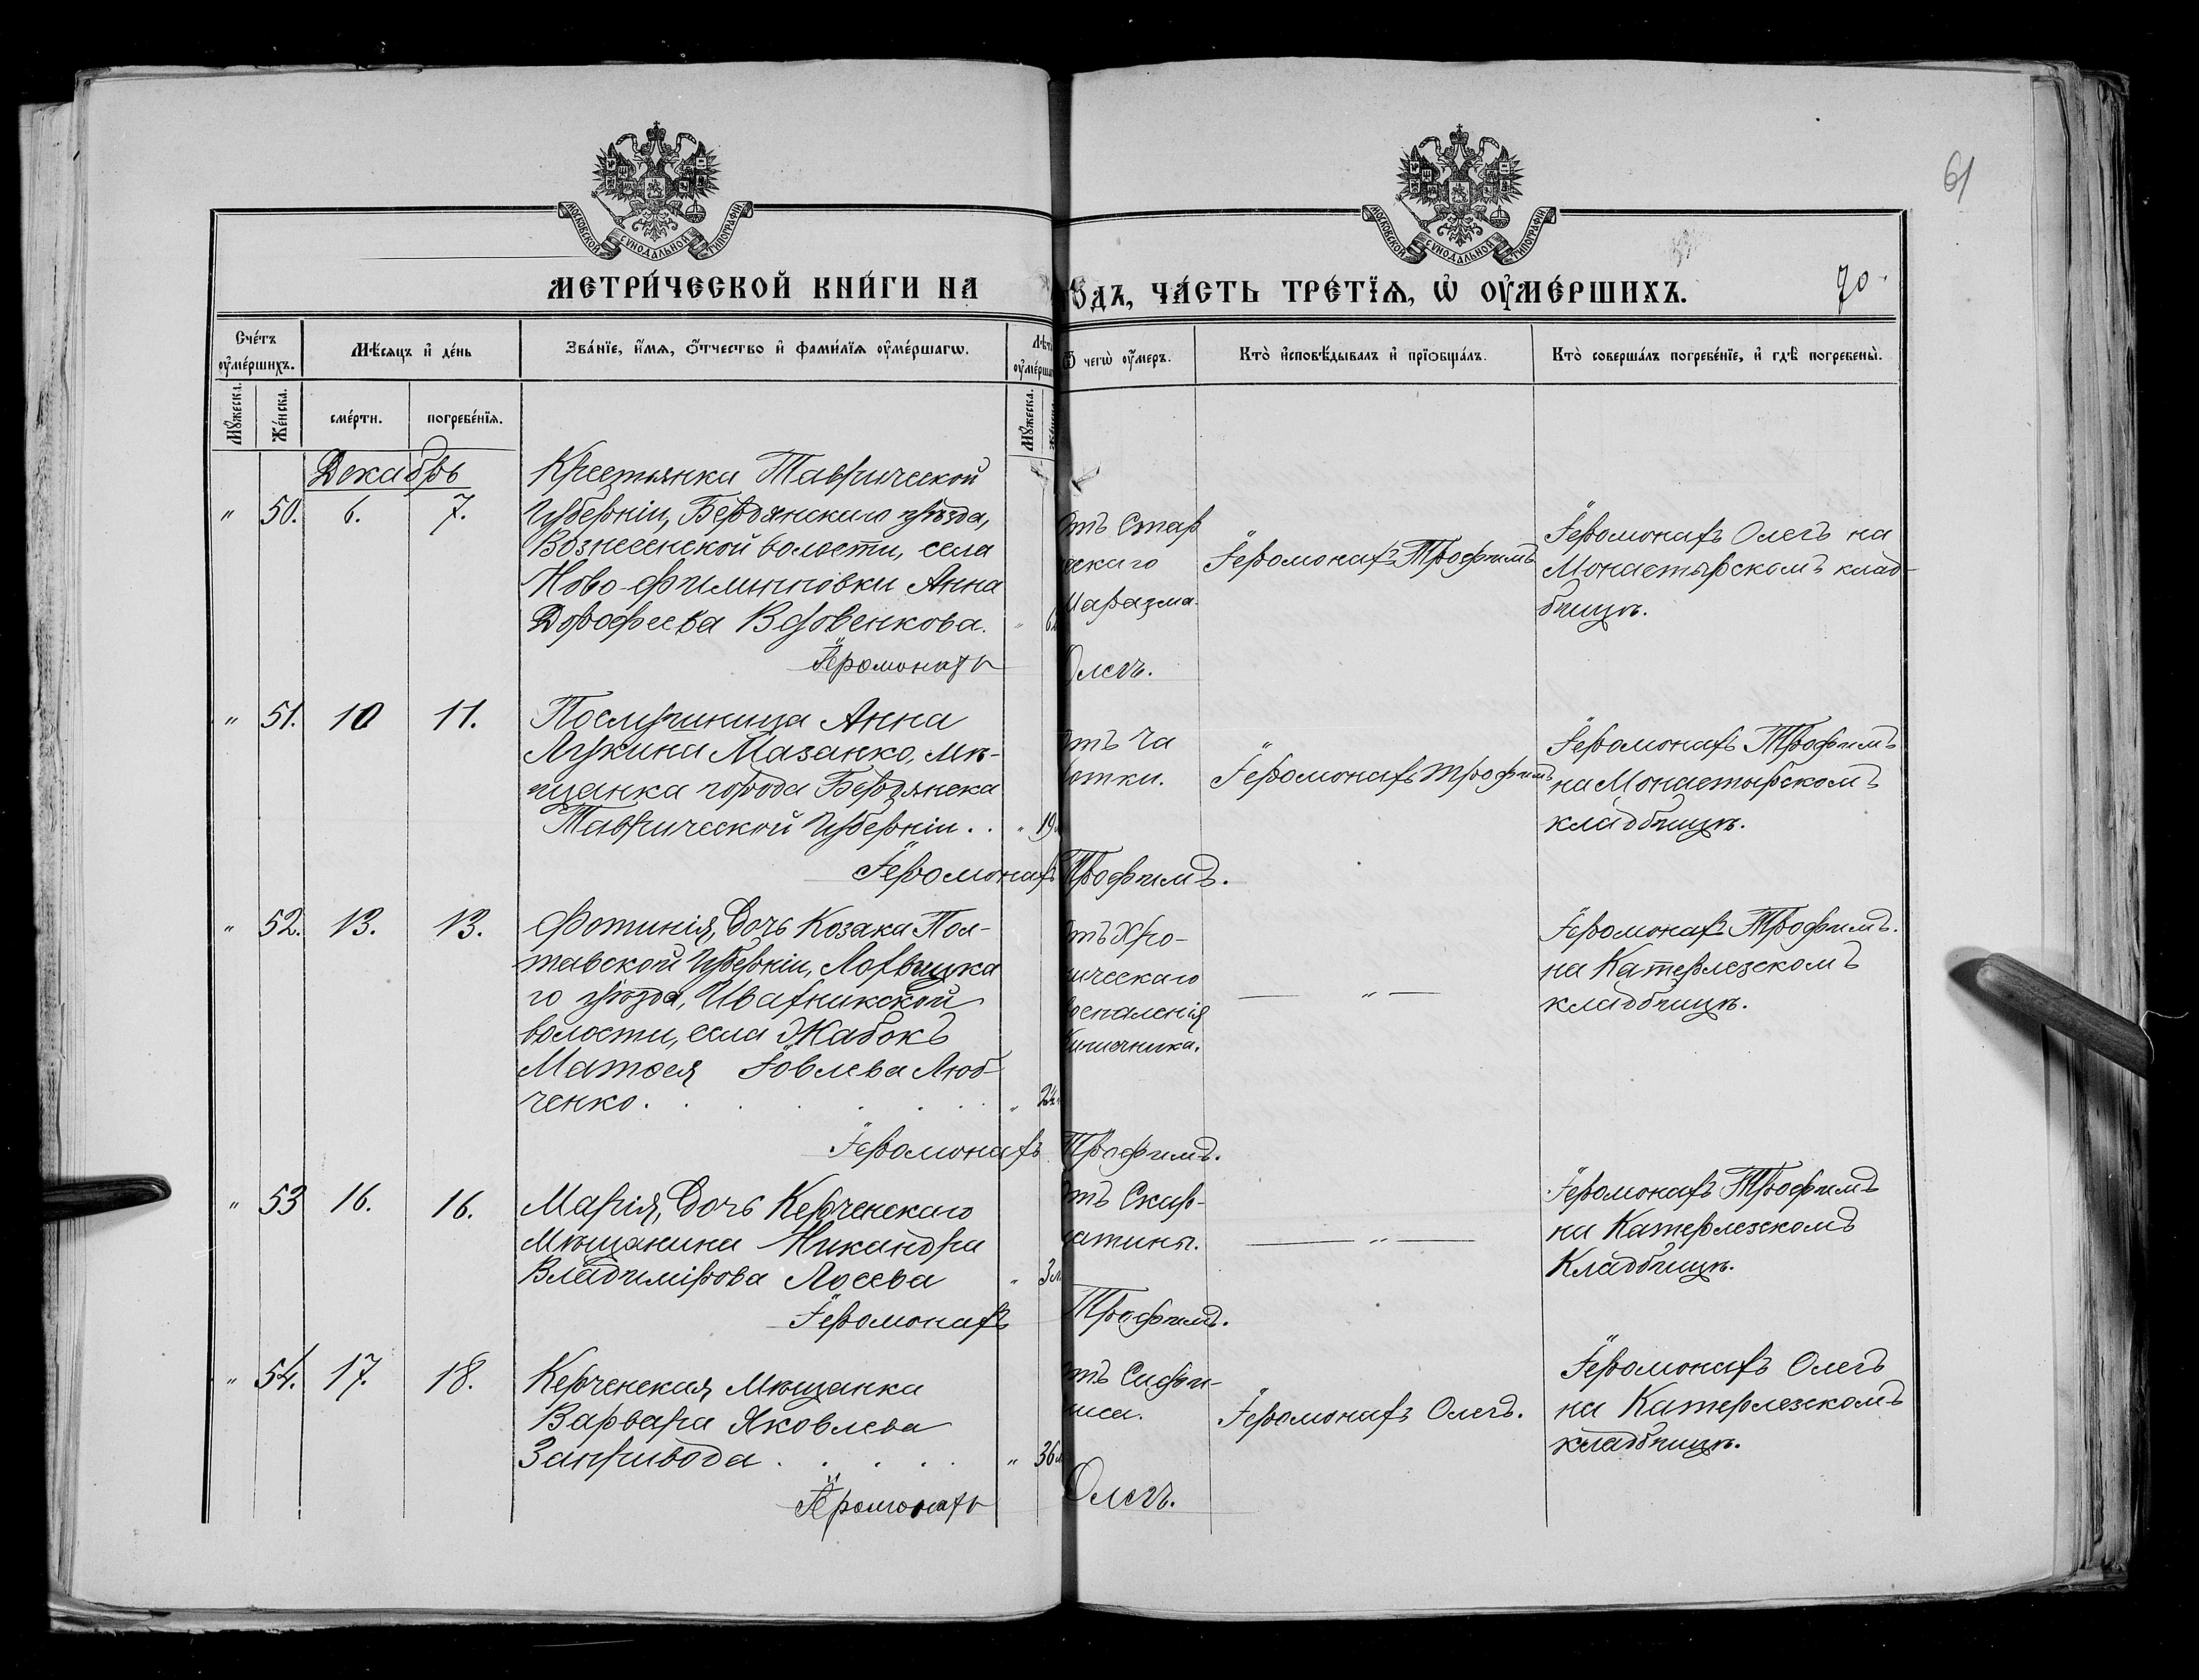 61
МОСКОВСКОЙ СѴНОДАЛЬНОЙ ТИПОГРАФІИ
МОСКОВСКОЙ СѴНОДАЛЬНОЙ ТИПОГРАФІИ
МЕТРИ́ЧЕСКОЙ КНИ́ГИ НА
ОДЪ, ЧА́СТЬ ТРЕ́ТЇѦ, Ѡ҆ ОУ҆МЕ́РШИХЪ.
70.
Сче́тъ оу҆ме́ршихъ.
Мѣ́сяцъ и҆ де́нь
Зва́нїе, и҆́мѧ, ѻ҆́тчество и҆ фами́лїѧ оу҆ме́ршагѡ.
Лѣт
оу҆ме́рша
Ѿ чегѡ̀ оу҆́меръ.
Кто̀ и҆сповѣ́дывалъ и҆ прїѻбща́лъ.
Кто̀ соверша́лъ погребе́нїе, и҆ гдѣ̀ погребены̀.
Мꙋ́жеска.
Же́нска.
сме́рти.
погребе́нїѧ.
Мꙋ́жеска.
Декабрь
" 50. 6. 7.
Крестьянка Таврической
Губерніи, Бердянскаго уѣзда,
Вознесенской волости, села
Ново-Филипповки Анна
Дорофеева Вдовенкова.
отъ Стар
ческаго
Маразма.
Іеромонахъ Трофимъ
Іеромонахъ Олегъ на
Монастырскомъ клад-
бищѣ.
Іеромонахъ Олегъ.
" 51. 10 11.
Послушница Анна
Лукина Мазанко, мѣ-
щанка города Бердянска
Таврической Губерніи. . " 19
отъ Ча
хотки.
Іеромонахъ Трофимъ
Іеромонахъ Трофимъ
на Монастырскомъ
кладбищѣ.
Іеромонахъ Трофимъ.
" 52. 13. 13.
Фотинія, дочь Козака Пол-
тавской Губерніи, Лохвицка
го уѣзда, Ивахникской
волости, села Жабокъ
Матѳея Іовлева Люб-
ченко. . . . . . . " 24
отъ Хро-
ническаго
воспаленія
Кишечника.
— " —
Іеромонахъ Трофимъ.
на Катерлезскомъ
кладбищѣ.
Іеромонахъ Трофимъ.
" 53 16. 16.
Марія, дочь Керченскаго
Мѣщанина Никандра
Владимірова Лосева " 3 л
отъ Скар-
латины.
— " —
Іеромонахъ Трофимъ
на Катерлезскомъ
Кладбищѣ.
Іеромонахъ Трофимъ.
" 54. 17. 18.
Керченская Мѣщанка
Варвара Яковлева
Запривода . . . . . " 36 л
отъ Сифи-
лиса.
Іеромонахъ Олегъ.
Іеромонахъ Олегъ
на Катерлезскомъ
кладбищѣ.
Іеромонахъ Олегъ.